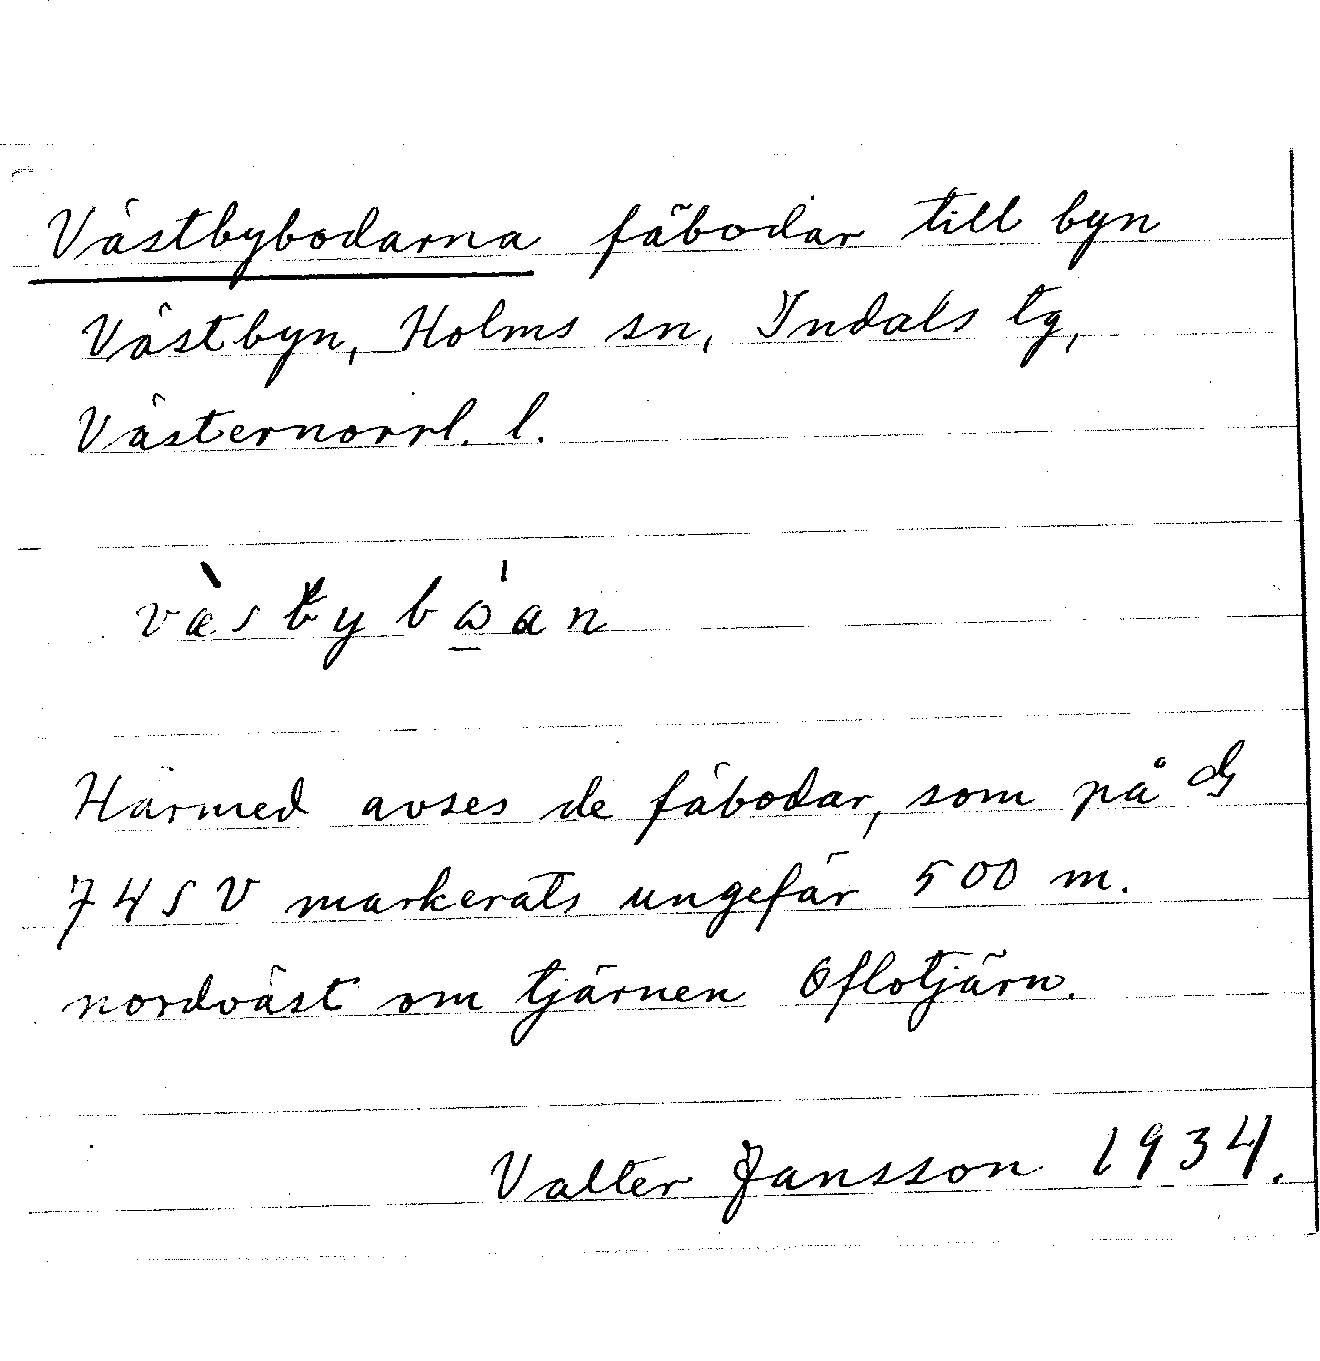 Västbybodarna fäbodar till byn
Västbyn, Holms sn, Indals tg,
Västernorrl. l.
væ̀stybώ̲an
Härmed avses de fäbodar, som på
74 SV markerats ungefär 500 m.
nordväst om tjärnen Oflotjärn.
Valter Jansson 1934.